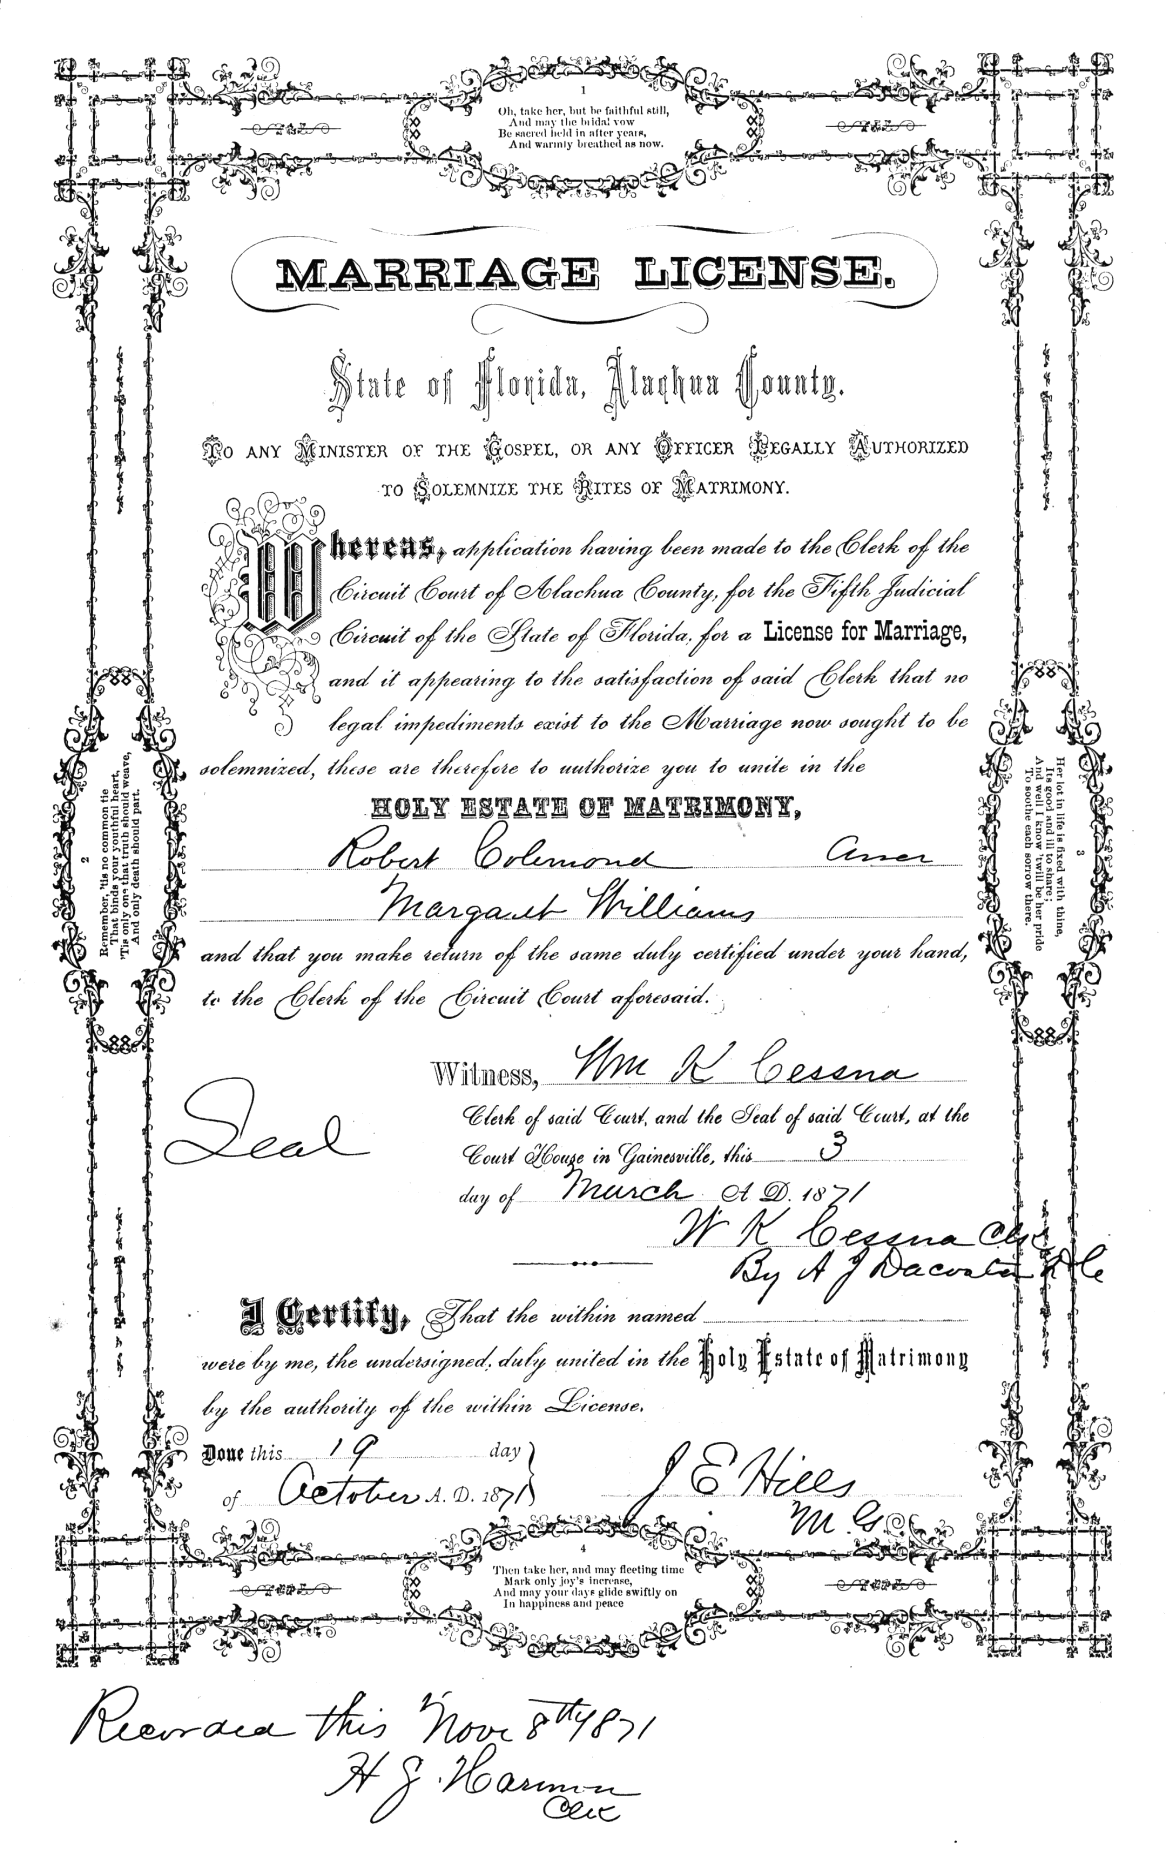 1
Oh, take her, but be faithful still,
And may the bridal vow
Be sacred held in after years,
And warmly breathed as now.
MARRIAGE LICENSE.
State of Florida, Alachua County.
TO ANY MINISTER OF THE GOSPEL, OR ANY OFFICER LEGALLY AUTHORIZED
TO SOLEMNIZE THE RITES OF MATRIMONY.
Whereas, application having been made to the Clerk of the
Circuit Court of Alachua County, for the Fifth Judicial
Circuit of the State of Florida, for a License for Marriage,
and it appearing to the satisfaction of said Clerk that no
legal impediments exist to the Marriage now sought to be
solemnized, these are therefore to authorize you to unite in the
HOLY ESTATE OF MATRIMONY,
Robert Colemond
Margaret Williams
and that you make return of the same duly certified under your hand,
to the Clerk of the Circuit Court aforesaid.
2
Remember, 'tis no common tie
That binds your youthful heart,
'Tis only one that truth should weave,
And only death should part.
3
Her lot in life is fixed with thine,
Its good and ill to share;
And well I know 'twill be her pride
To soothe each sorrow there.
Witness, Wm K Cessna
Clerk of said Court, and the Seal of said Court, at the
Seal
Court House in Gainesville, this 3
day of March A D. 1871
W K Cessna Clk
By A J Dacosta D C
I Certify, That the within named
were by me, the undersigned, duly united in the Holy Estate of Matrimony
by the authority of the within License.
Done this 19 day
of October A. D. 1871
J E Hills
M. G.
4
Then take her, and may fleeting time
Mark only joy's increase,
And may your days glide swiftly on
In happiness and peace
Recorded this Nov 8th 1871
H J. Harmon
Clk